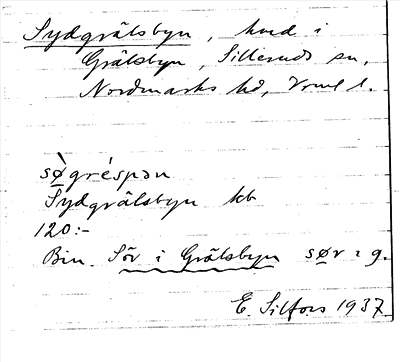 Sydgrälsbyn, hmd i
Grälsbyn, Silleruds sn,
Nordmarks hd, Vrml l.
sø̀gréspən
Sydgrälsbyn kb
120:-
Bin. Sör i Grälsbyn sør i g.
E. Silfors 1937